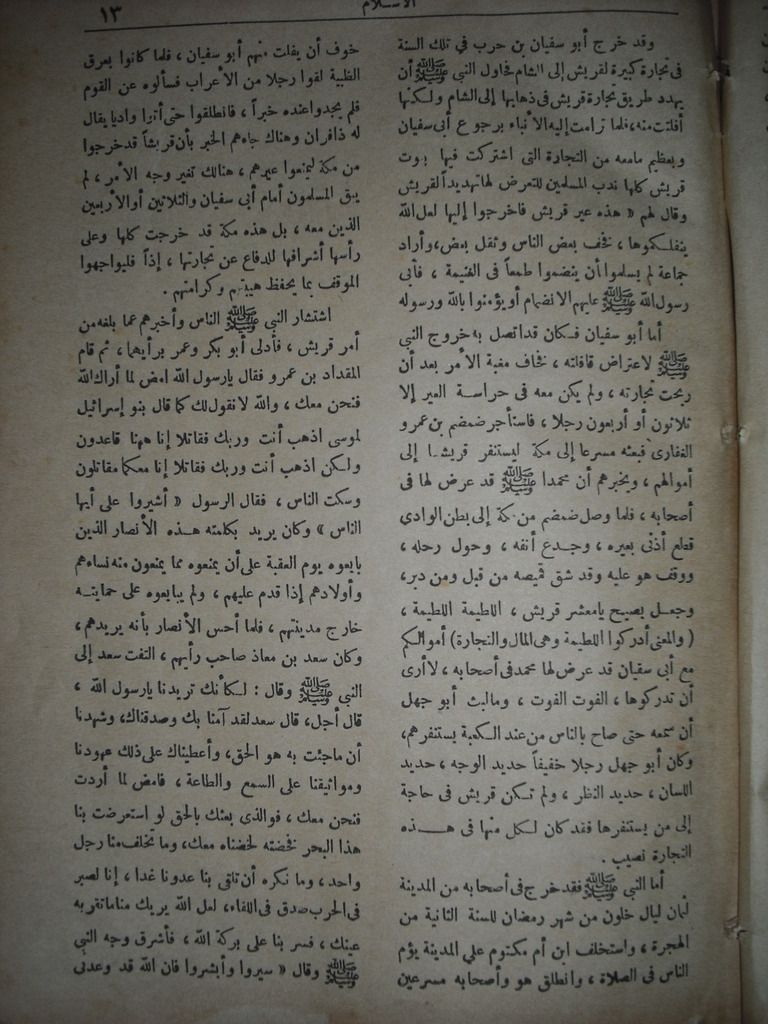 الاسلام
١٣
وقد خرج أبو سفيان بن حرب في تلك السنة
فى تجارة كبيرة لقريش إلى الشام فحاول النبي ﷺ أن
يهدد طريق تجارة قريش فى ذهابها إلى الشام ولكنها
أفلتت منه، فلما ترامت إليه الأنباء برجوع أبى سفيان
وبعظيم مامعه من التجارة التى اشتركت فيها بيوت
قريش كلها ندب المسلمين للتعرض لها تهديداً لقريش
وقال لهم « هذه عير قريش فاخرجوا إليها لعل الله
ينفلكموها ، فخف بعض الناس وثقل بعض، وأراد
جماعة لم يسلموا أن ينضموا طمعاً فى الغنيمة ، فأبى
رسول الله ﷺ عليهم الانضمام أو يؤمنوا بالله ورسوله
أما أبو سفيان فكان قد اتصل به خروج النبي
ﷺ لاعتراض قافلته ، فخاف مغبة الأمر بعد أن
ربحت تجارته ، ولم يكن معه فى حراسة العير إلا
ثلاثون أو أربعون رجلا ، فاستأجر ضمضم بن عمرو
الغفارى فبعثه مسرعا إلى مكة ليستنفر قريشا إلى
أموالهم ، ويخبرهم أن محمدا ﷺ قد عرض لها فى
أصحابه ، فلما وصل ضمضم من مكة إلى بطن الوادى
قطع أذنى بعيره ، وجدع أنفه ، وحول رحله ،
ووقف هو عليه وقد شق قميصه من قبل ومن دبر،
وجعل يصيح يامعشر قريش ، اللطيمة اللطيمة ،
( والمعنى أدركوا اللطيمة وهى المال والتجارة) أموالكم
مع أبي سفيان قد عرض لها محمد فى أصحابه ، لا أرى
أن تدركوها ، الغوث الغوث ، ومالبث أبو جهل
أن سمعه حتى صاح بالناس من عند الكعبة يستنفرهم،
وكان أبو جهل رجلا خفيفاً حديد الوجه ، حديد
اللسان ، حديد النظر ، ولم تكن قريش فى حاجة
إلى من يستنفرها فقد كان لكل منها فى هذه
التجارة نصيب .
أما النبي ﷺ فقد خرج فى أصحابه من المدينة
لثمان ليال خلون من شهر رمضان للسنة الثانية من
الهجرة ، واستخلف ابن أم مكتوم على المدينة يؤم
الناس فى الصلاة ، وانطلق هو وأصحابه مسرعين
خوف أن يفلت منهم أبو سفيان، فلما كانوا بعرق
الظبية لقوا رجلا من الأعراب فسألوه عن القوم
فلم يجدوا عنده خبراً ، فانطلقوا حتى أتوا واديا يقال
له ذافران وهناك جاءهم الخبر بأن قريشاً قد خرجوا
من مكة ليمنعوا عيرهم ، هنالك تغير وجه الأمر، لم
يبق المسلمون أمام أبى سفيان والثلاثين أو الأربعين
الذين معه ، بل هذه مكة قد خرجت كلها وعلى
رأسها أشرافها للدفاع عن تجارتها ، إذاً فليواجهوا
الموقف بما يحفظ هيبتهم وكرامتهم .
اشتشار النبي ﷺ الناس وأخبرهم عما بلغه من
أمر قريش ، فأدلى أبو بكر وعمر برأيهما ، ثم قام
المقداد بن عمرو فقال يارسول الله امض لما أراك الله
فنحن معك ، والله لا نقول لك كما قال بنو إسرائيل
لموسى اذهب أنت وربك فقاتلا إنا ههنا قاعدون
ولكن اذهب أنت وربك فقاتلا إنا معكما مقاتلون
وسكت الناس ، فقال الرسول « أشيروا على أيها
الناس » وكان يريد بكلمته هذه الأنصار الذين
بايعوه يوم العقبة على أن يمنعوه مما يمنعون منه نساءهم
وأولادهم إذا قدم عليهم ، ولم يبايعوه على حمايته
خارج مدينتهم ، فلما أحس الأنصار بأنه يريدهم،
وكان سعد بن معاذ صاحب رأيهم ، التفت سعد إلى
النبي ﷺ وقال : لكأنك تريدنا يارسول الله ،
قال أجل، قال سعد لقد آمنا بك وصدقناك، وشهدنا
أن ماجئت به هو الحق، وأعطيناك على ذلك عهودنا
ومواثيقنا على السمع والطاعة ، فامض لما أردت
فنحن معك ، فوالذى بعثك بالحق لو استعرضت بنا
هذا البحر فخضته لخضناه معك، وما تخلف منا رجل
واحد ، وما نكره أن تلقى بنا عدونا غدا ، إنا لصبر
فى الحرب صدق فى اللقاء، لعل الله يريك منا ما تقر به
عينك ، فسر بنا على بركة الله ، فأشرق وجه النبي
ﷺ وقال « سيروا وأبشروا فان الله قد وعدنى